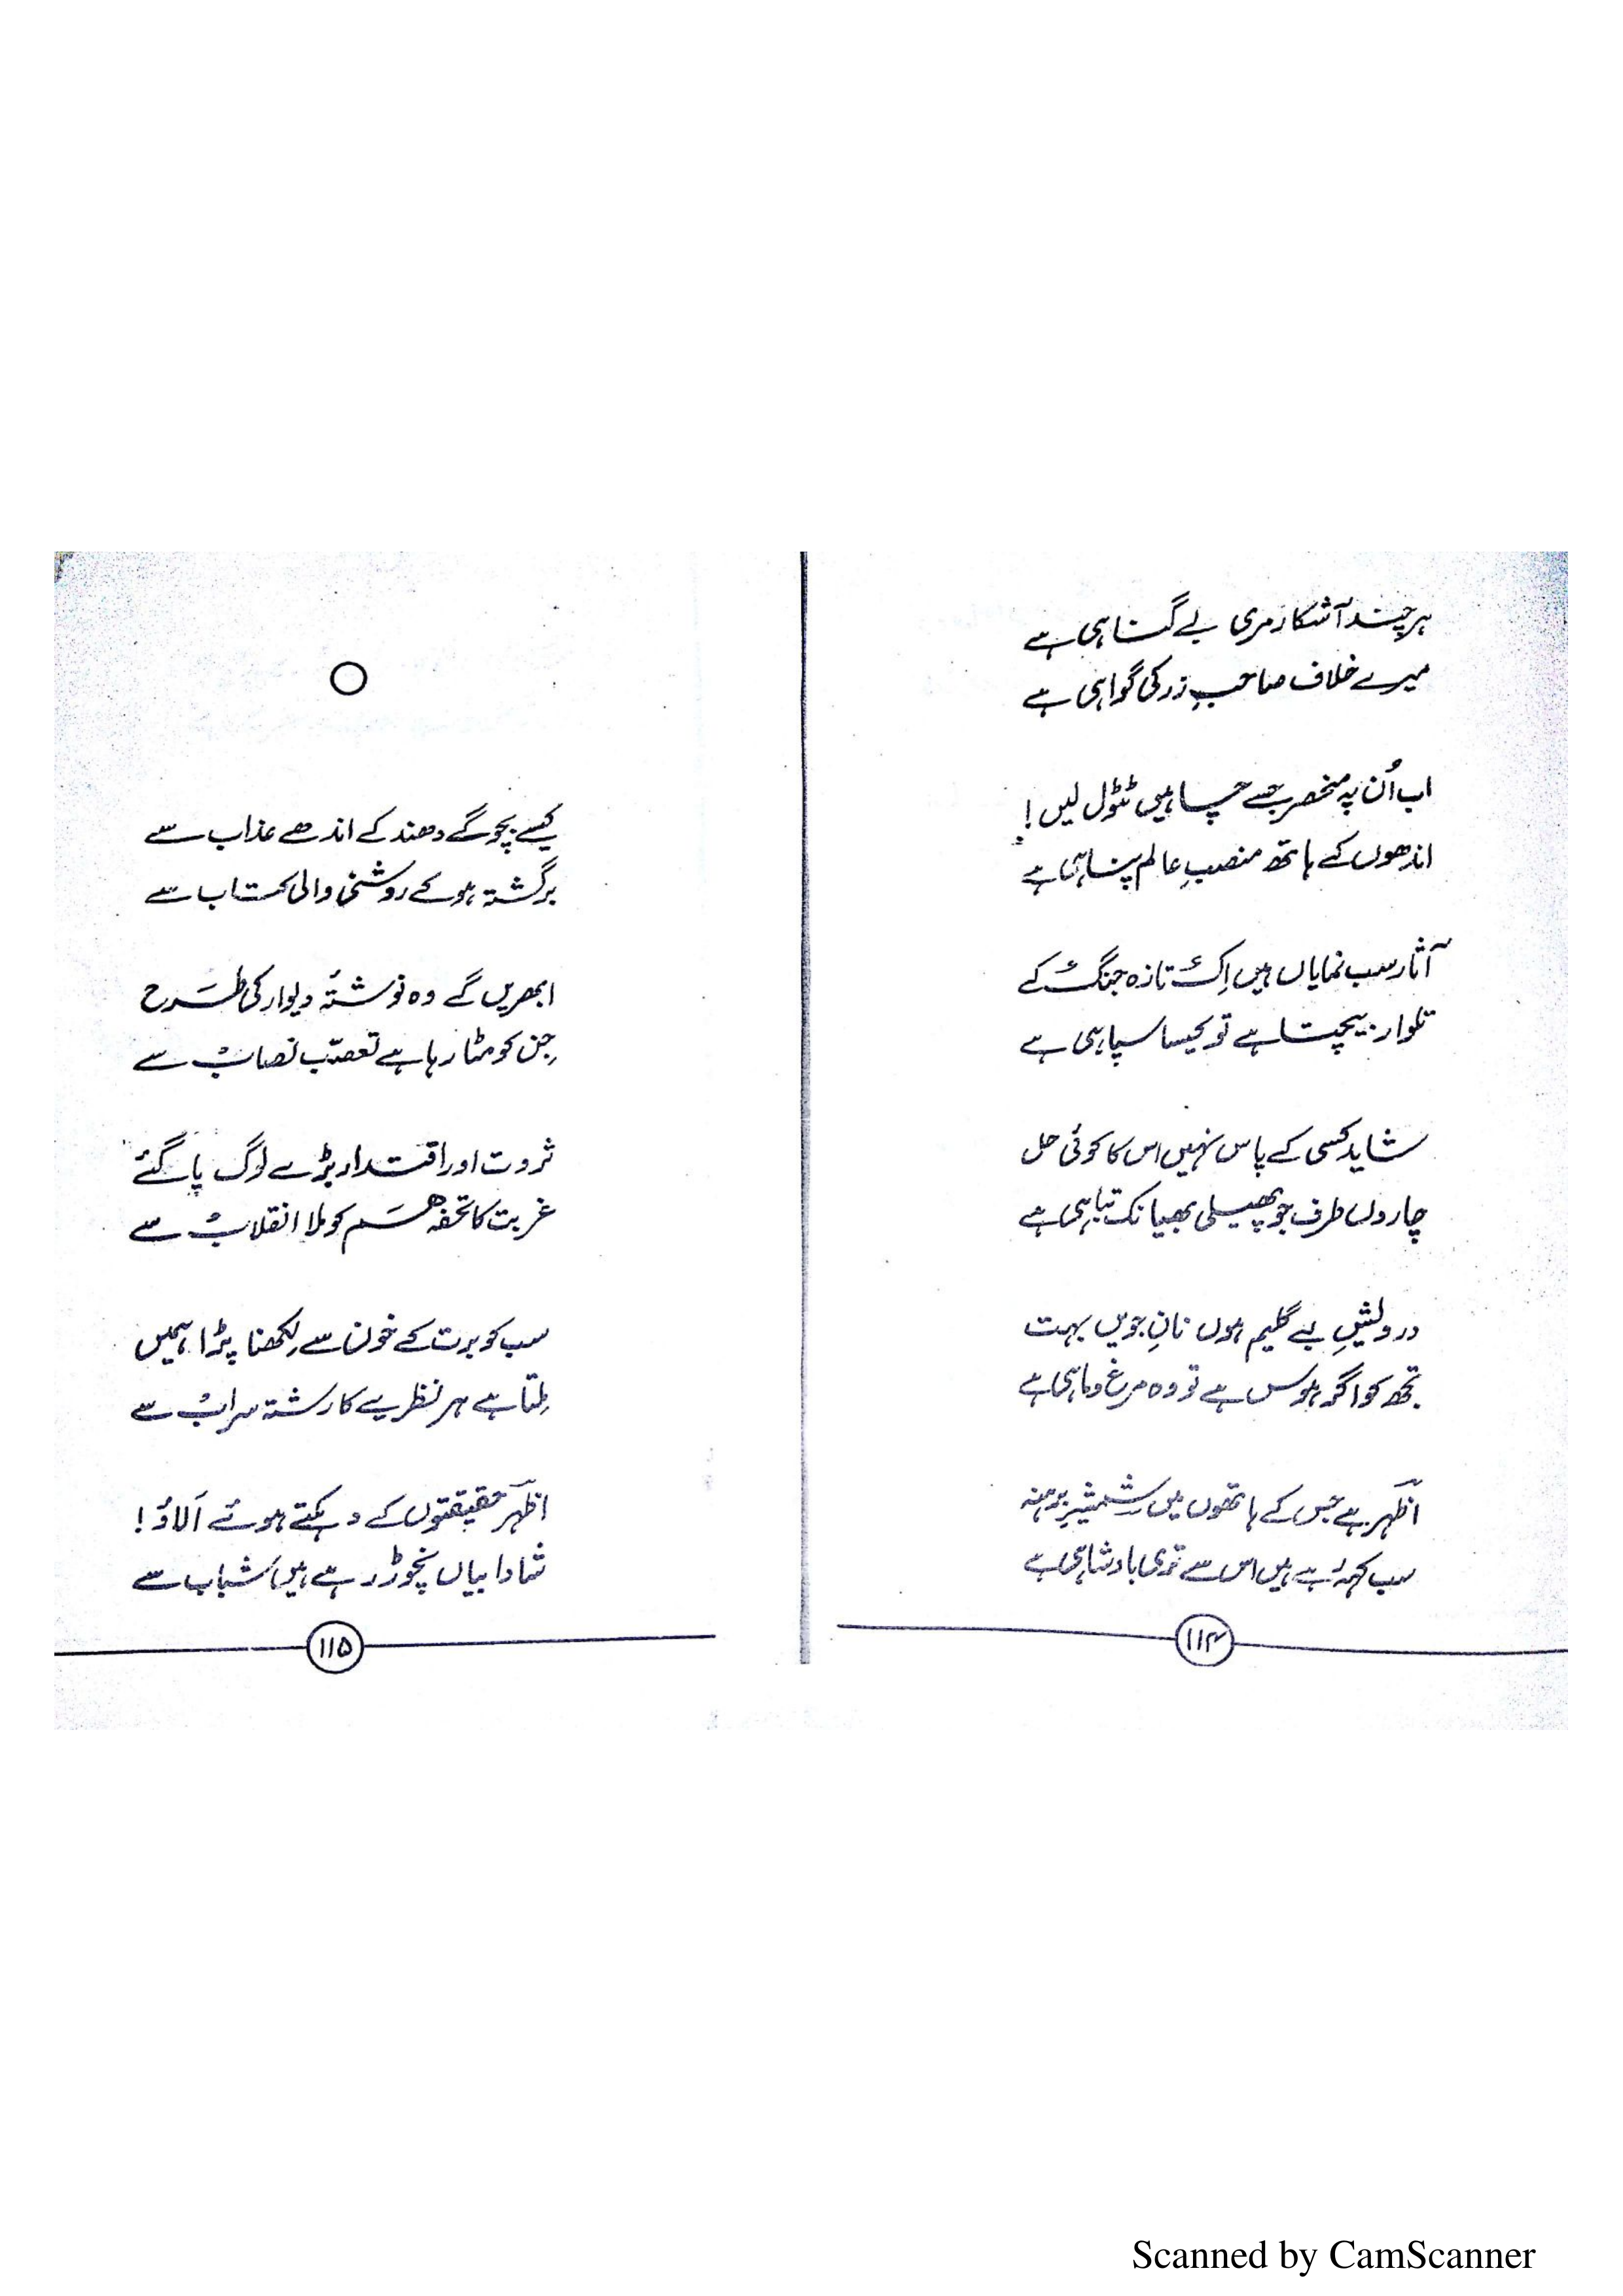 ہر چند آشکار مری بے گناہی ہے
میرے خلاف صاحبِ زر کی گواہی ہے
اب اُن پہ منحصر جسے چاہیں ٹٹول لیں !
اندھوں کے ہاتھ منصبِ عالم پناہی ہے
آثار سب نمایاں ہیں اِک تازہ جنگ کے
تلوار بیچتا ہے تو کیسا سپاہی ہے
شاید کسی کے پاس نہیں اس کا کوئی حل
چاروں طرف جو پھیلی بھیانک تباہی ہے
درویشِ بے گلیم ہوں نانِ جویں بہت
تجھ کو اگر ہوس ہے تو وہ مرغ و ماہی ہے
اظہر ہے جس کے ہاتھوں میں شمشیرِ برہنہ
سب کہہ رہے ہیں اس سے تری بادشاہی ہے
۱۱۴
کیسے بچو گے دھند کے اندھے عذاب سے
برگشتہ ہو کے روشنی والی کتاب سے
ابھریں گے وہ نوشتۂ دیوار کی طرح
جِن کو مٹا رہا ہے تعصّب نصاب سے
ثروت اور اقتدار بڑے لوگ پا گئے
غربت کا تحفہ ہم کو ملا انقلاب سے
سب کو برت کے خون سے لِکھنا پڑا ہمیں
مِلتا ہے ہر نظریے کا رشتہ سراب سے
اظہر حقیقتوں کے دہکتے ہوئے اَلاؤ !
شادابیاں نچوڑ رہے ہیں شباب سے
۱۱۵
Scanned by CamScanner